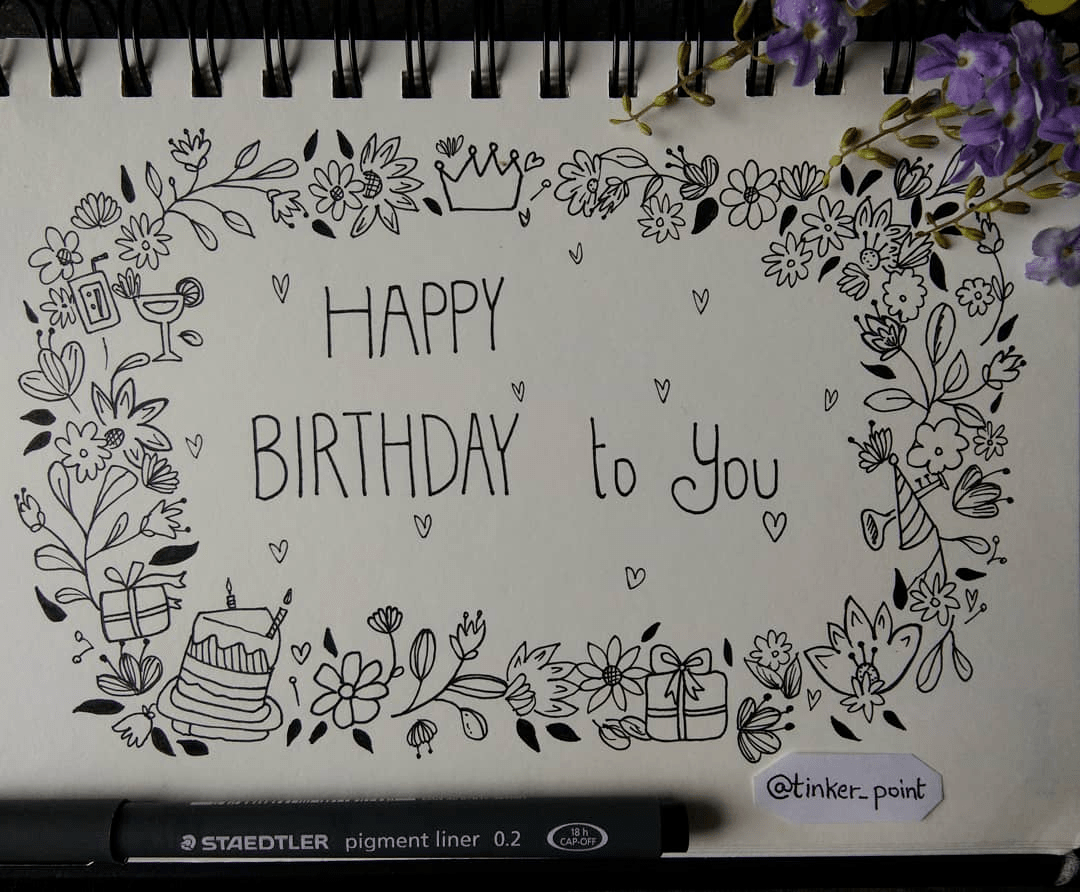 HAPPY
BIRTHDAY to You
@tinker_point
STAEDTLER pigment liner 0.2 18 h
CAP-OFF